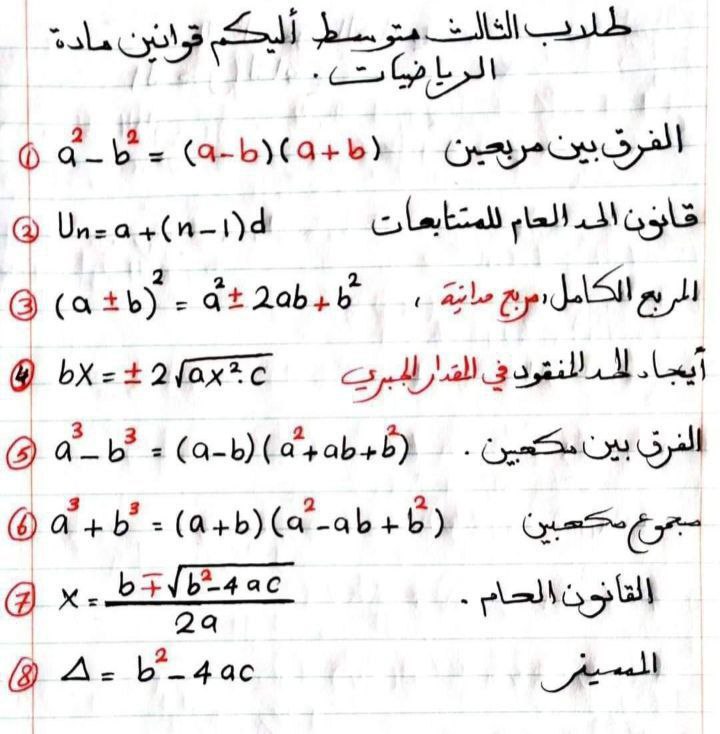 طلاب الثالث متوسط أليكم قوانين مادة
الرياضيات.
① a² - b² = (a-b)(a+b) الفرق بين مربعين
② Un = a + (n-1)d قانون الحد العام للمتتابعات
③ (a ± b)² = a² ± 2ab + b² المربع الكامل، مربع حدانية،
④ bX = ± 2√ax².c أيجاد الحد المفقود في المقدار الجبري
⑤ a³ - b³ = (a-b)(a² + ab + b²) الفرق بين مكعبين.
⑥ a³ + b³ = (a+b)(a² - ab + b²) مجموع مكعبين
⑦ X = (b ∓ √(b² - 4ac)) / 2a القانون العام.
⑧ Δ = b² - 4ac المميز